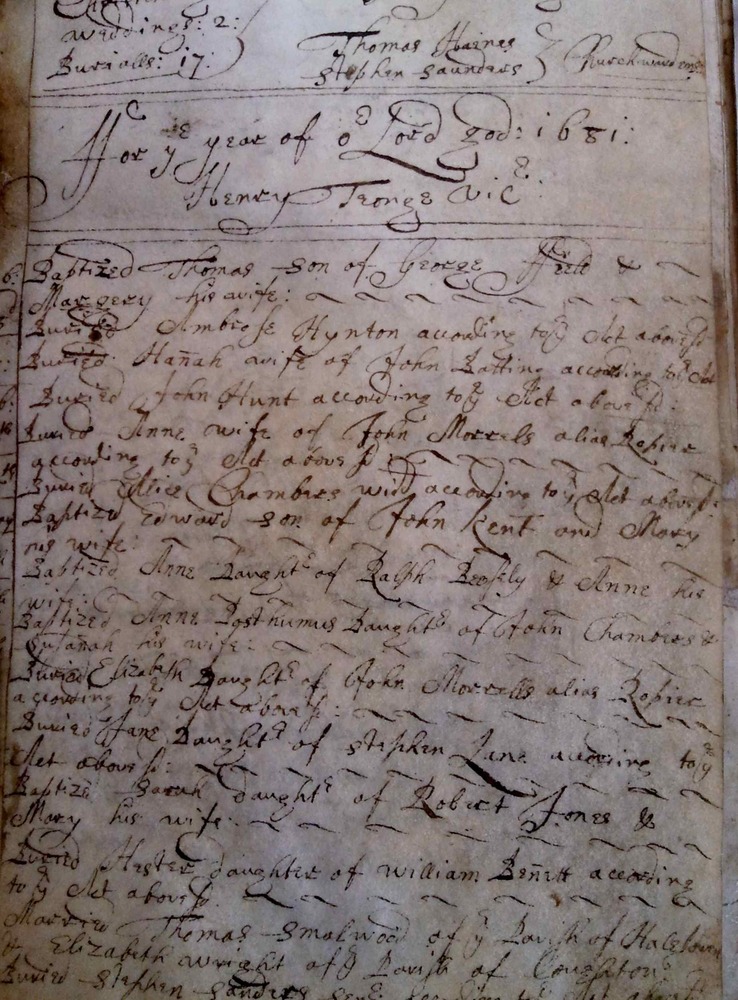 Weddings: 2:
Burialls: 17:
Thomas Haines
Stephen Saunders
Churchwardens
For yᵉ year of oʳ Lord god: 1681:
Henry Teonge Vic:
Baptized Thomas son of George ffeild &
Margery his wife:
Buried Ambrose Hynton according to yᵉ Act aboveſd
Buried Hañah wife of John Batting according to yᵉ Act
Buried John Hunt according to yᵉ Act aboveſd:
Buried Anne wife of John Morrells alias Ropier
according to yᵉ Act aboveſd:
Buried Alice Chambers widd according to yᵉ Act aboveſd:
Baptized Edward son of John Kent and Mary
his wife:
Baptized Anne Daughtʳ of Ralph &  Anne his
wife:
Baptized Anne Posthumus Daughtʳ of John Chambers &
Susañah his wife:
Buried Elizabeth Daughtʳ of John Morrells alias Ropier
according to yᵉ Act aboveſd:
Buried Jane Daughtʳ of Stephen Lane according to yᵉ
Act aboveſd:
Baptized Sarah daughtʳ of Robert Jones &
Mary his wife:
Buried Hester daughter of william Beñitt according
to yᵉ Act aboveſd.
Married Thomas Smalwood of yᵉ Parish of
& Elizabeth wright of yᵉ Parish of Coughton
Buried Stephen Sanders